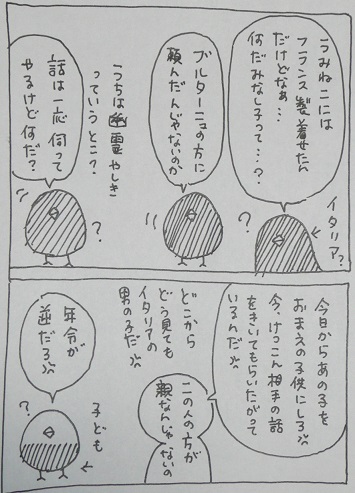 うみねこには
フランス製着せたん
だけどなぁ…
何だみなし子って…?
?
イタリア?
ブルターニュの方に
頼んだんじゃないのか
うちは幽霊やしき
っていうとこ?
話は一応伺って
やるけど何だ?
?
今日からあの子を
おまえの子供にしろ
今、けっこん相手の話
をきいてもらいたがって
いるんだ
どこから
どう見ても
イタリアの
男の子だ
この人の方が
親なんじゃないの
年令が
逆だろ
?
子ども